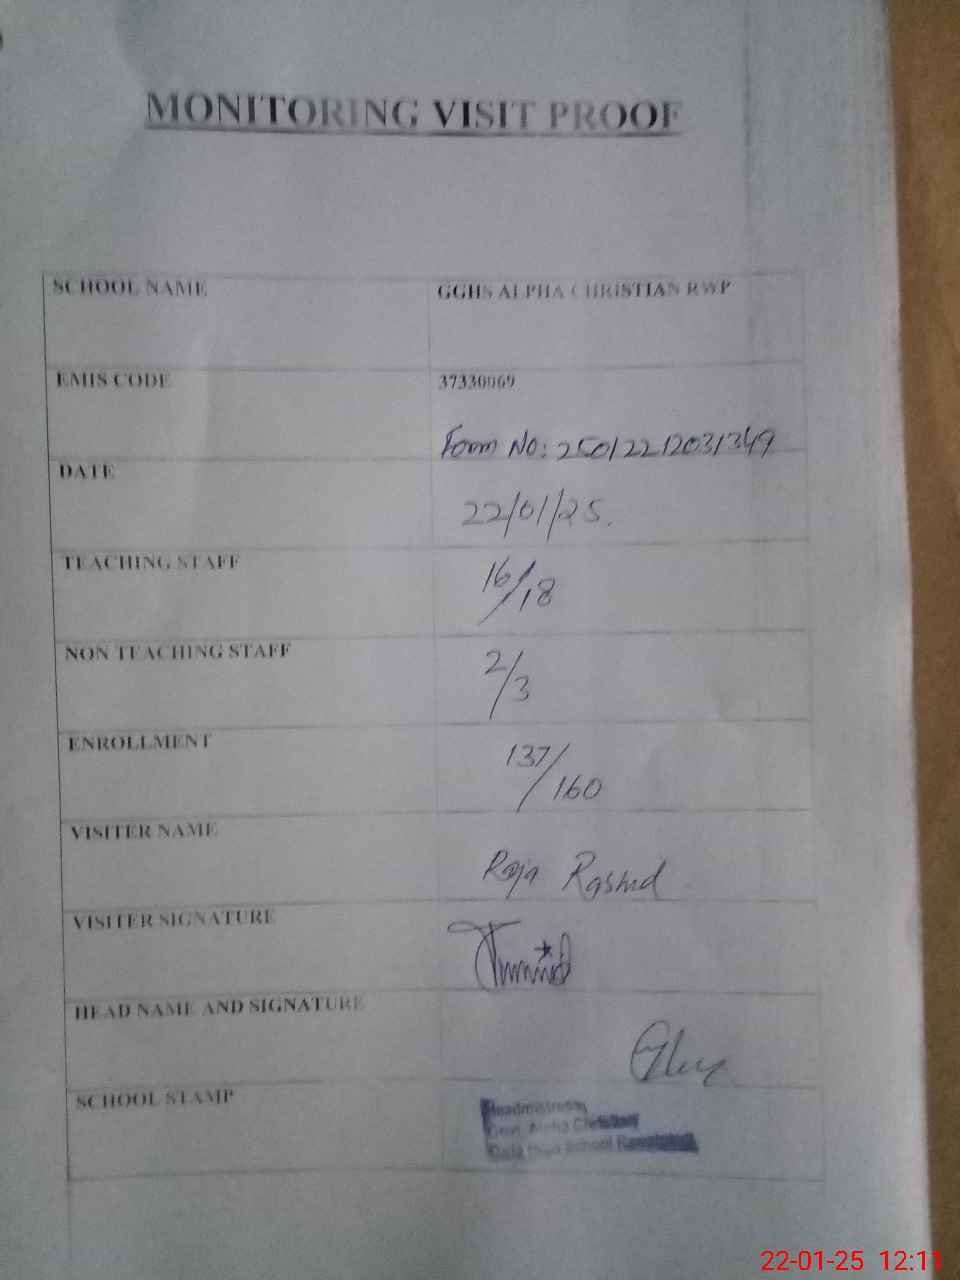 MONITORING VISIT PROOF
SCHOOL NAME GGHS ALPHA CHRISTIAN RWP
EMIS CODE 37330069
Form No: 25012212031349
DATE 22/01/25.
TEACHING STAFF 16/18
NON TEACHING STAFF 2/3
ENROLLMENT 137/160
VISITER NAME Raja Rashid
VISITER SIGNATURE
HEAD NAME AND SIGNATURE
SCHOOL STAMP
Headmistress
Govt. Alpha Christian
Girls High School Rawalpindi
22-01-25 12:11